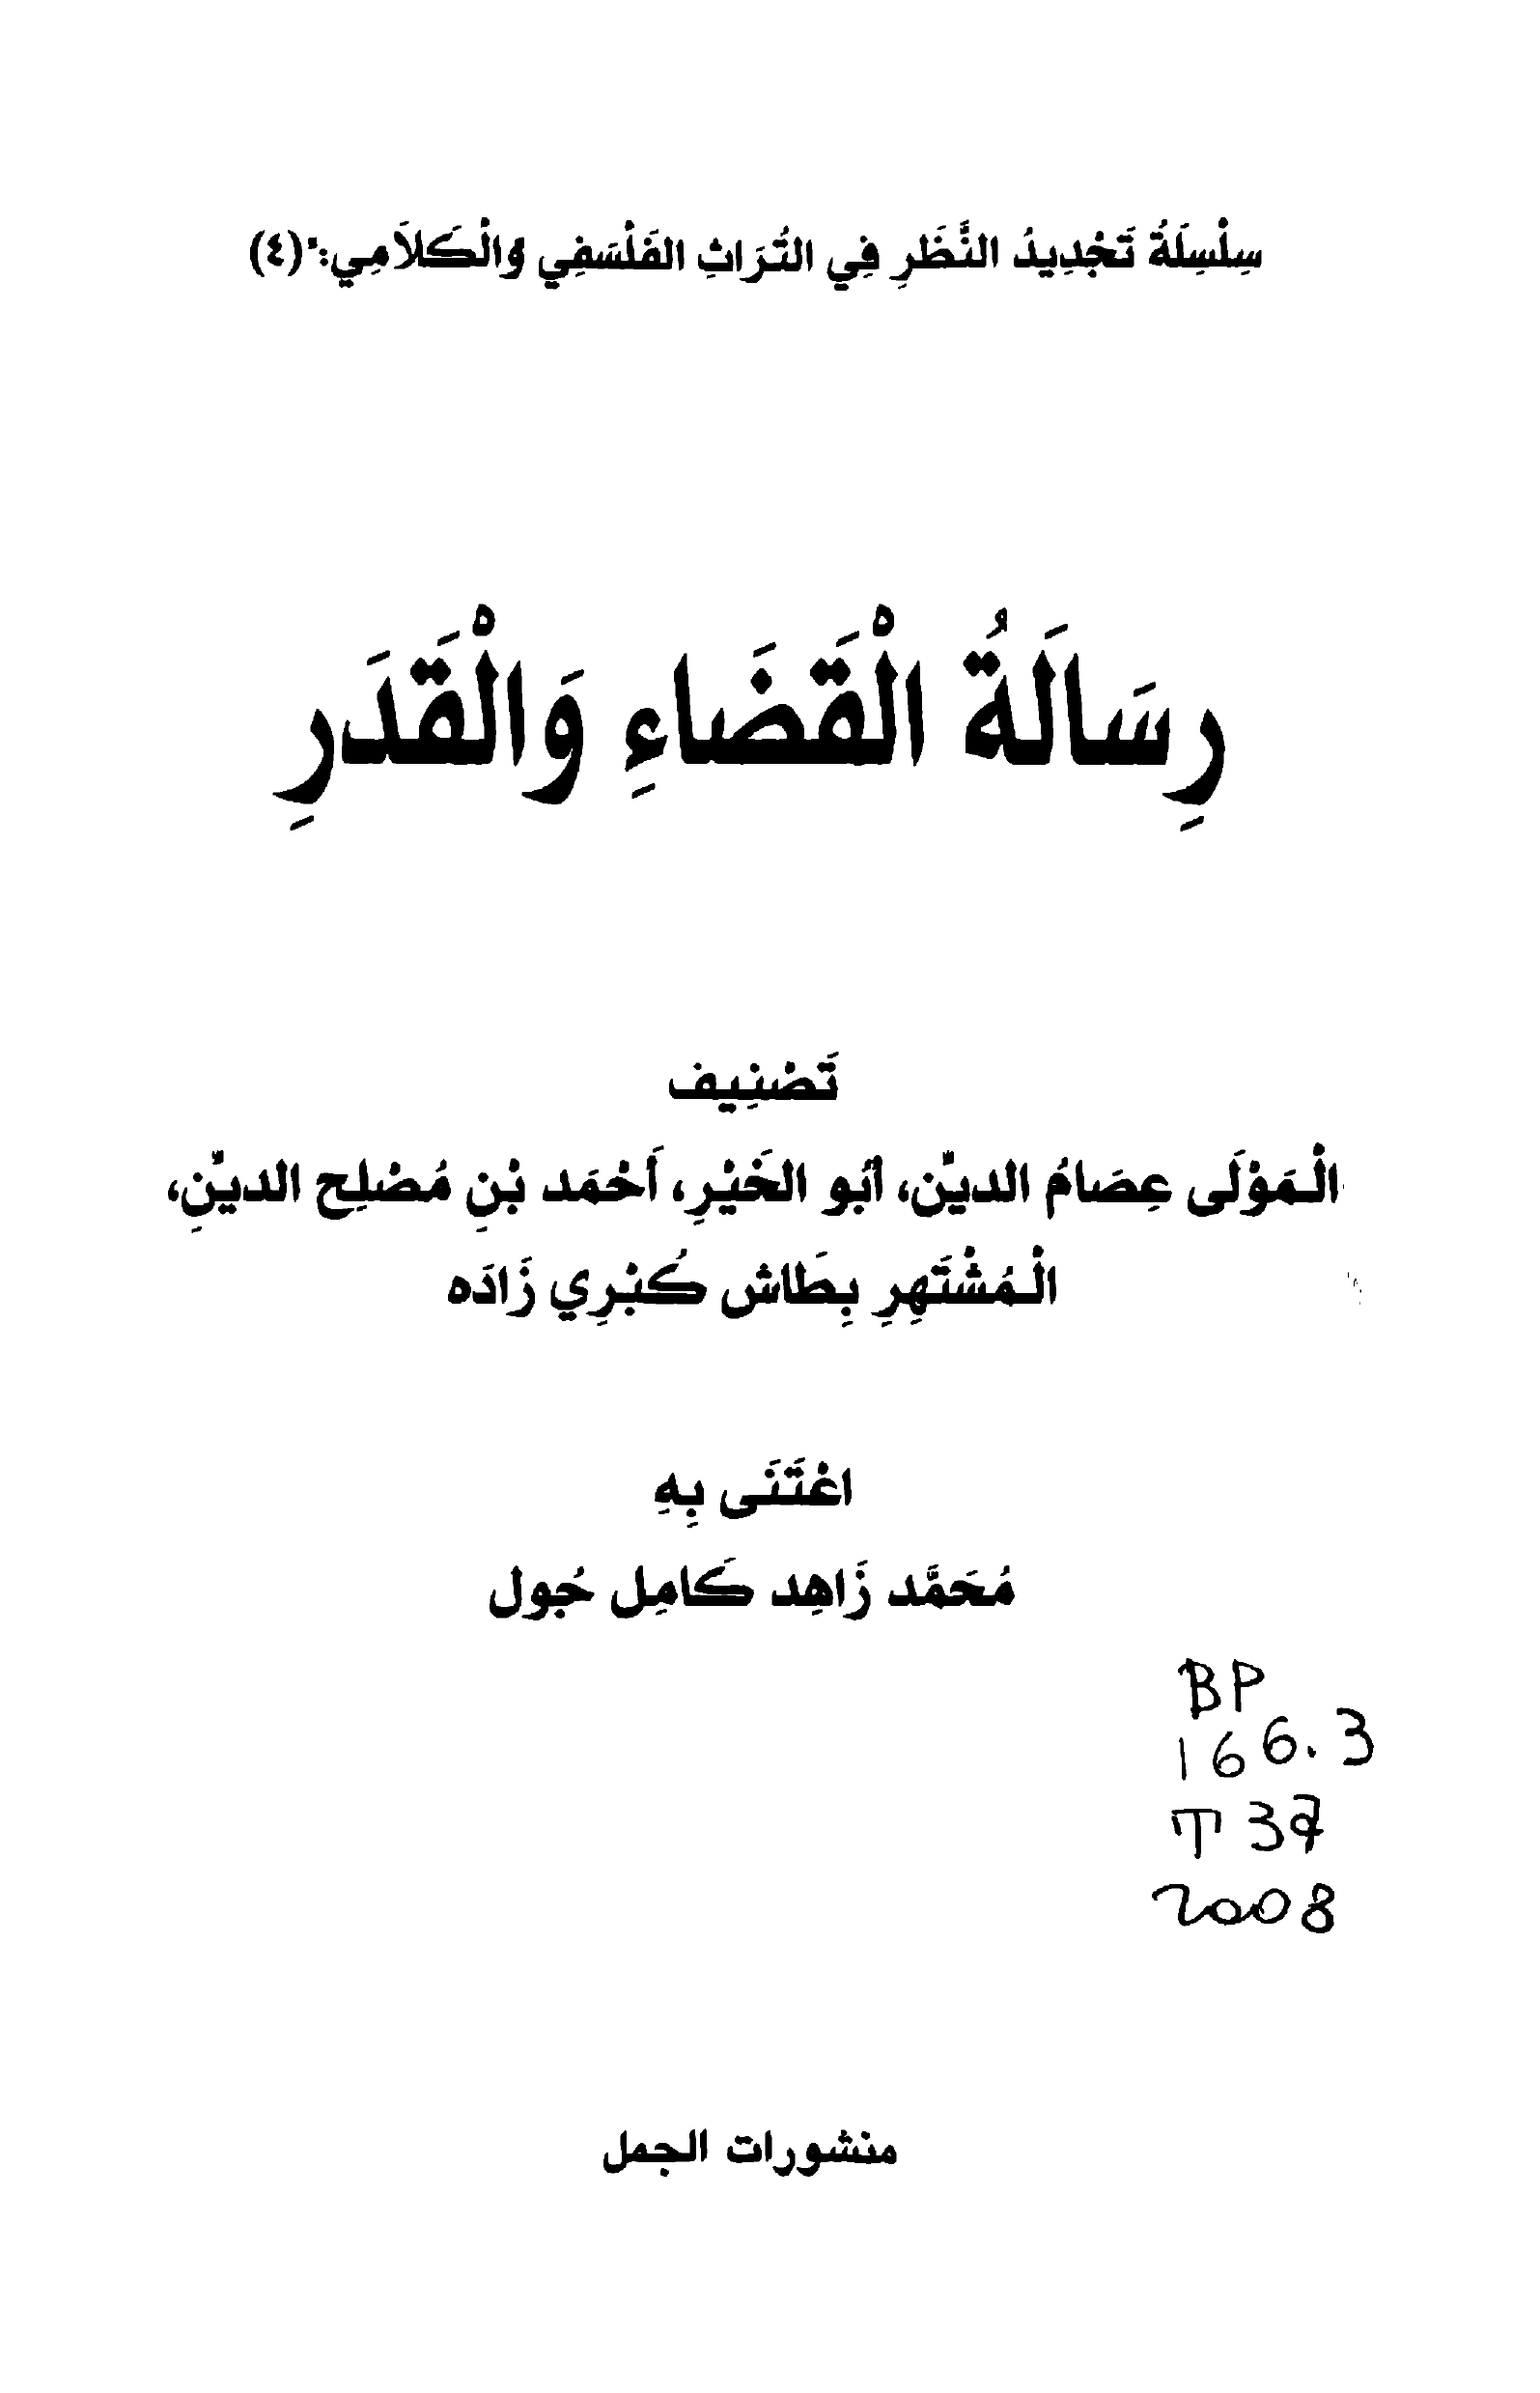 سِلْسِلَةُ تَجْدِيدُ النَّظَرِ فِي التُرَاثِ الفَلْسَفِي وَالْكَلاَمِي: (٤)
رِسَالَةُ الْقَضَاءِ وَالْقَدَرِ
تَصْنِيف
الْمَوْلَى عِصَامُ الديّن، أبُو الخَيْرِ، أَحْمَد بْنِ مُصْلِح الديّنِ،
الْمُشْتَهِرِ بِطَاش كُبْرِي زَادَه
اعْتَنَى بِهِ
مُحَمَّد زَاهِد كَامِل جُول
BP
166.3
T37
2008
منشورات الجمل